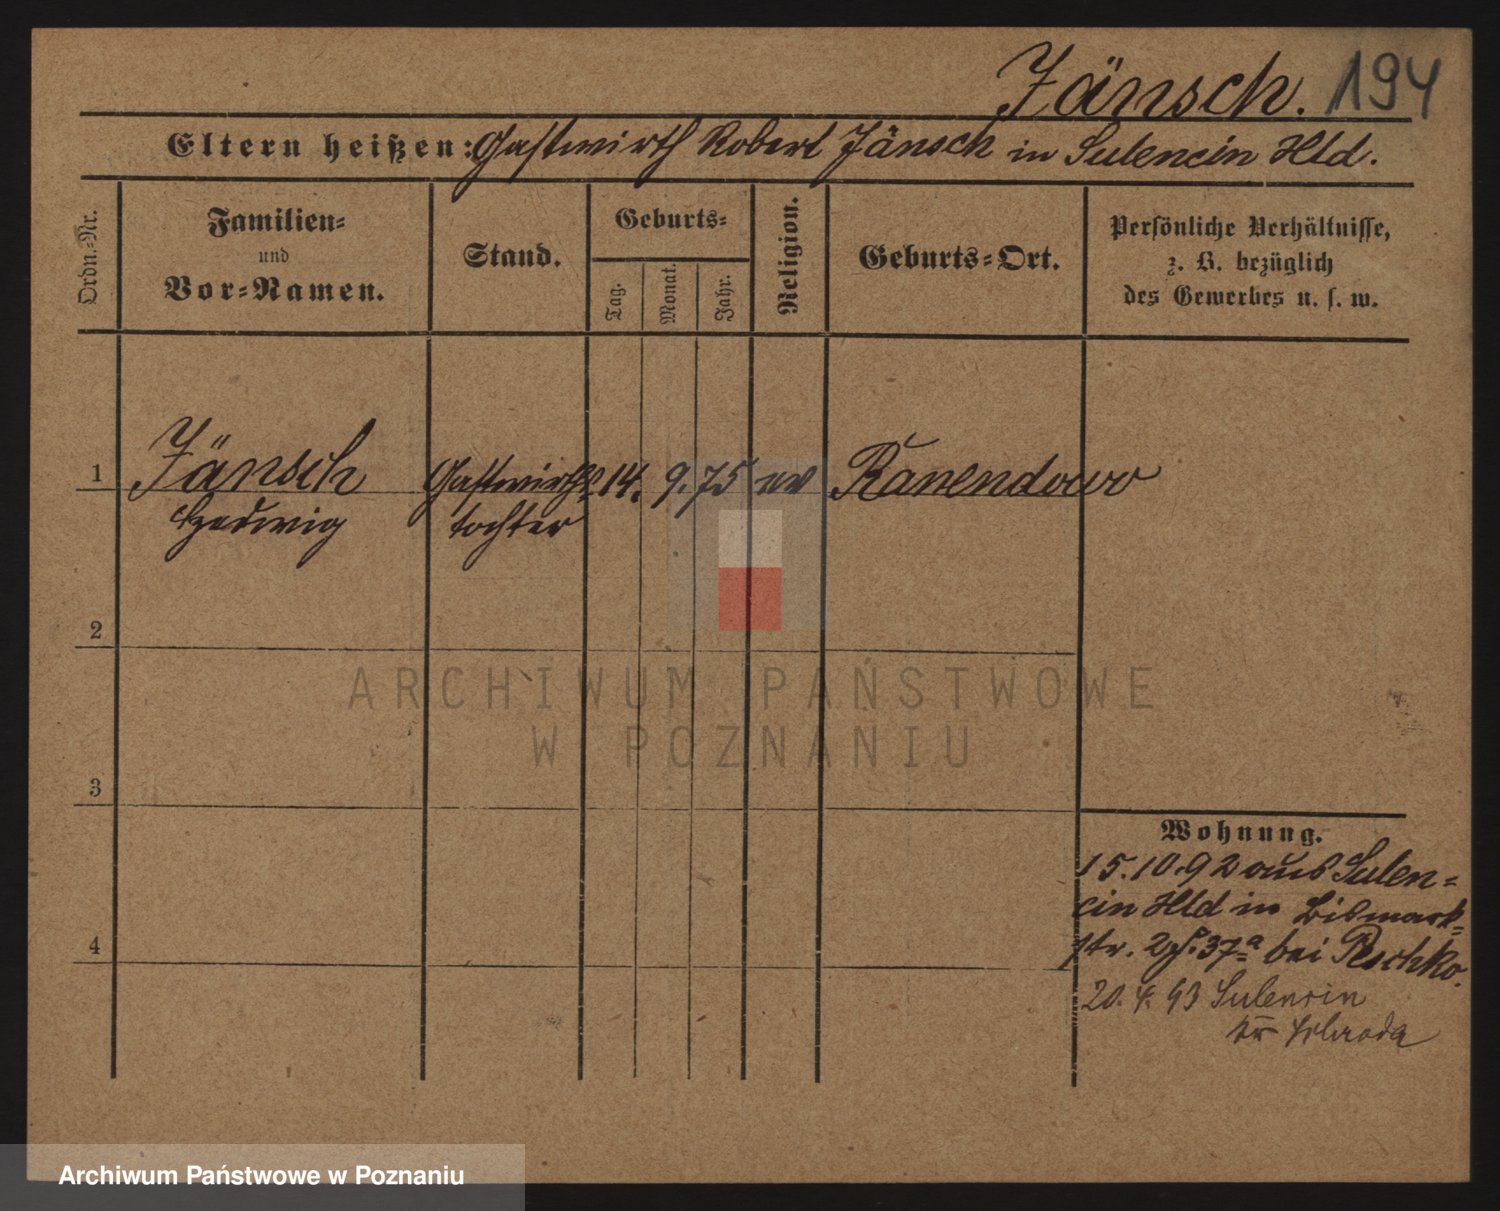 Jänsch. 194
Eltern heißen: Gastwirth Robert Jänsch in Sulencin Hld.
Ordn.-Nr.
Familien-
und
Vor-Namen.
Stand.
Geburts-
Tag.
Monat.
Jahr.
Religion.
Geburts-Ort.
Persönliche Verhältnisse,
z. B. bezüglich
des Gewerbes u. s. w.
1 Jänsch Gastwirths 14. 9. 75 ev
Hedwig tochter
2
ARCHIWUM PAŃSTWOWE
W POZNANIU
3
4
Wohnung.
15.10.92 aus Sulen-
cin Hld in Bismark-
str. 37a bei Peschko.
20. 4. 93 Sulencin
Kr Schroda
Archiwum Państwowe w Poznaniu